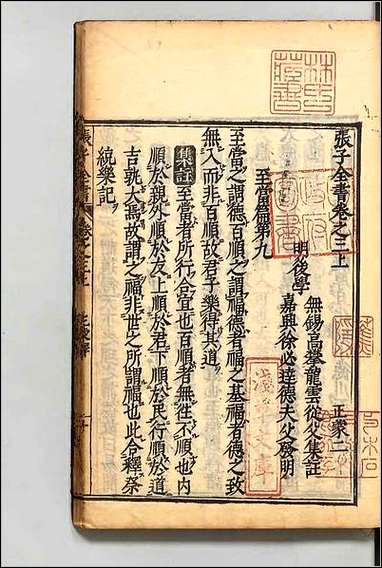 張子全書卷之三上
明後學
無錫高攀龍雲從父集註
嘉興徐必達德夫父發明
正蒙二
至當篇第九
至當之謂德百順之謂福德者福之基福者德之致
無入而非百順故君子樂得其道
集註至當者所行合宜也百順者無徃不順也内
順於親外順於友上順於君下順於民行順於道
吉孰大焉故謂之福非世之所謂福也此合釋祭
統樂記
林氏藏書
淺草文庫
張子全書